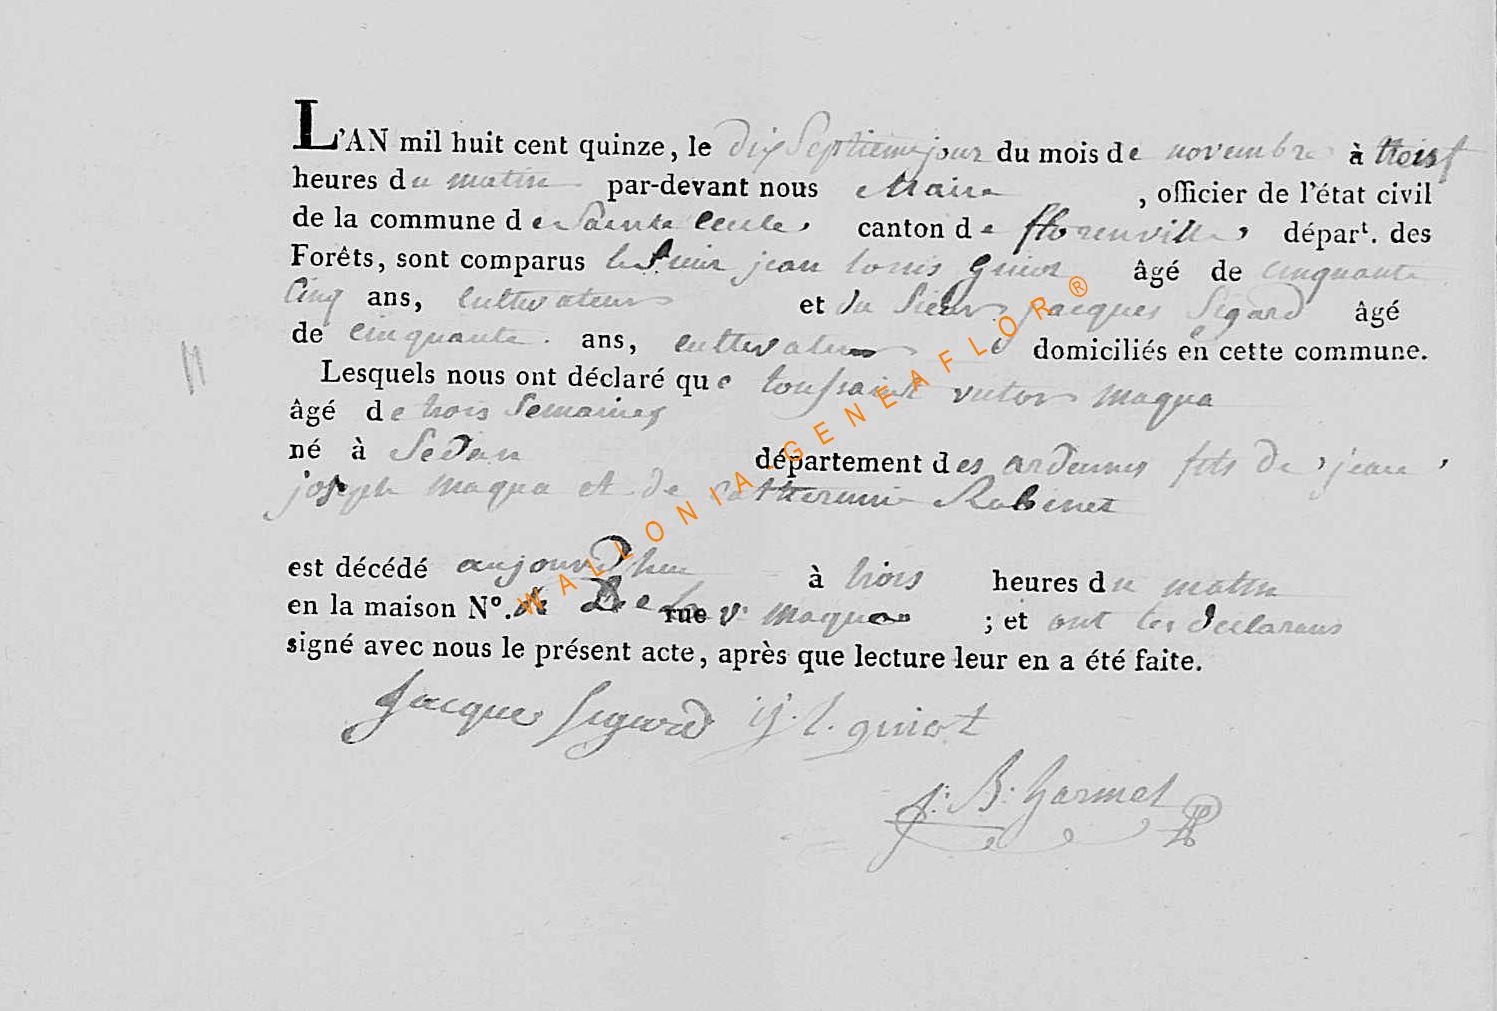 L'AN mil huit cent quinze, le dix Septieme jour du mois de novembre à trois
heures du matin par-devant nous Maire , officier de l'état civil
de la commune de Sainte Cecile, canton de fflorenville, départ. des
Forêts, sont comparus le Sieur jean louis Guiot âgé de cinquante
Cinq ans, Cultivateur et du Sieur jacques Sigard âgé
de cinquante ans, cultivateur domiciliés en cette commune.
Lesquels nous ont déclaré que toussaint victor maqua
âgé de trois Semaines
né à Sedan département des ardennes fils de jean
joseph maqua et de Catherinne Robinet
est décédé aujourd'hui à trois heures du matin
en la maison N°. De la rue Ve maqua ; et ont les declarans
signé avec nous le présent acte, après que lecture leur en a été faite.
Jacque Sigard j. l. guiot
j: B: harmel
WALLONIA-GENEAFLOR®